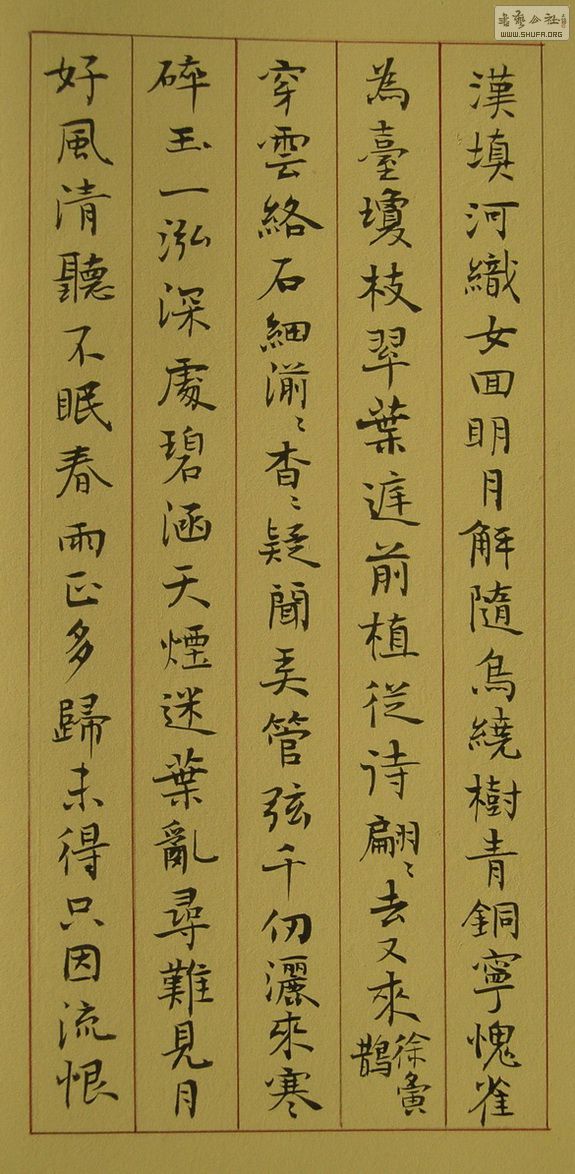 漢填河織女回明月解隨烏繞樹青銅寧愧雀
為臺瓊枝翠葉庭前植從待翩〻去又來徐夤鵲
穿雲絡石細湔〻杳〻疑聞弄管弦千仞灑來寒
碎玉一泓深處碧涵天煙迷葉亂尋難見月
好風清聽不眠春雨正多歸未得只因流恨
書藝公社
WWW.SHUFA.ORG